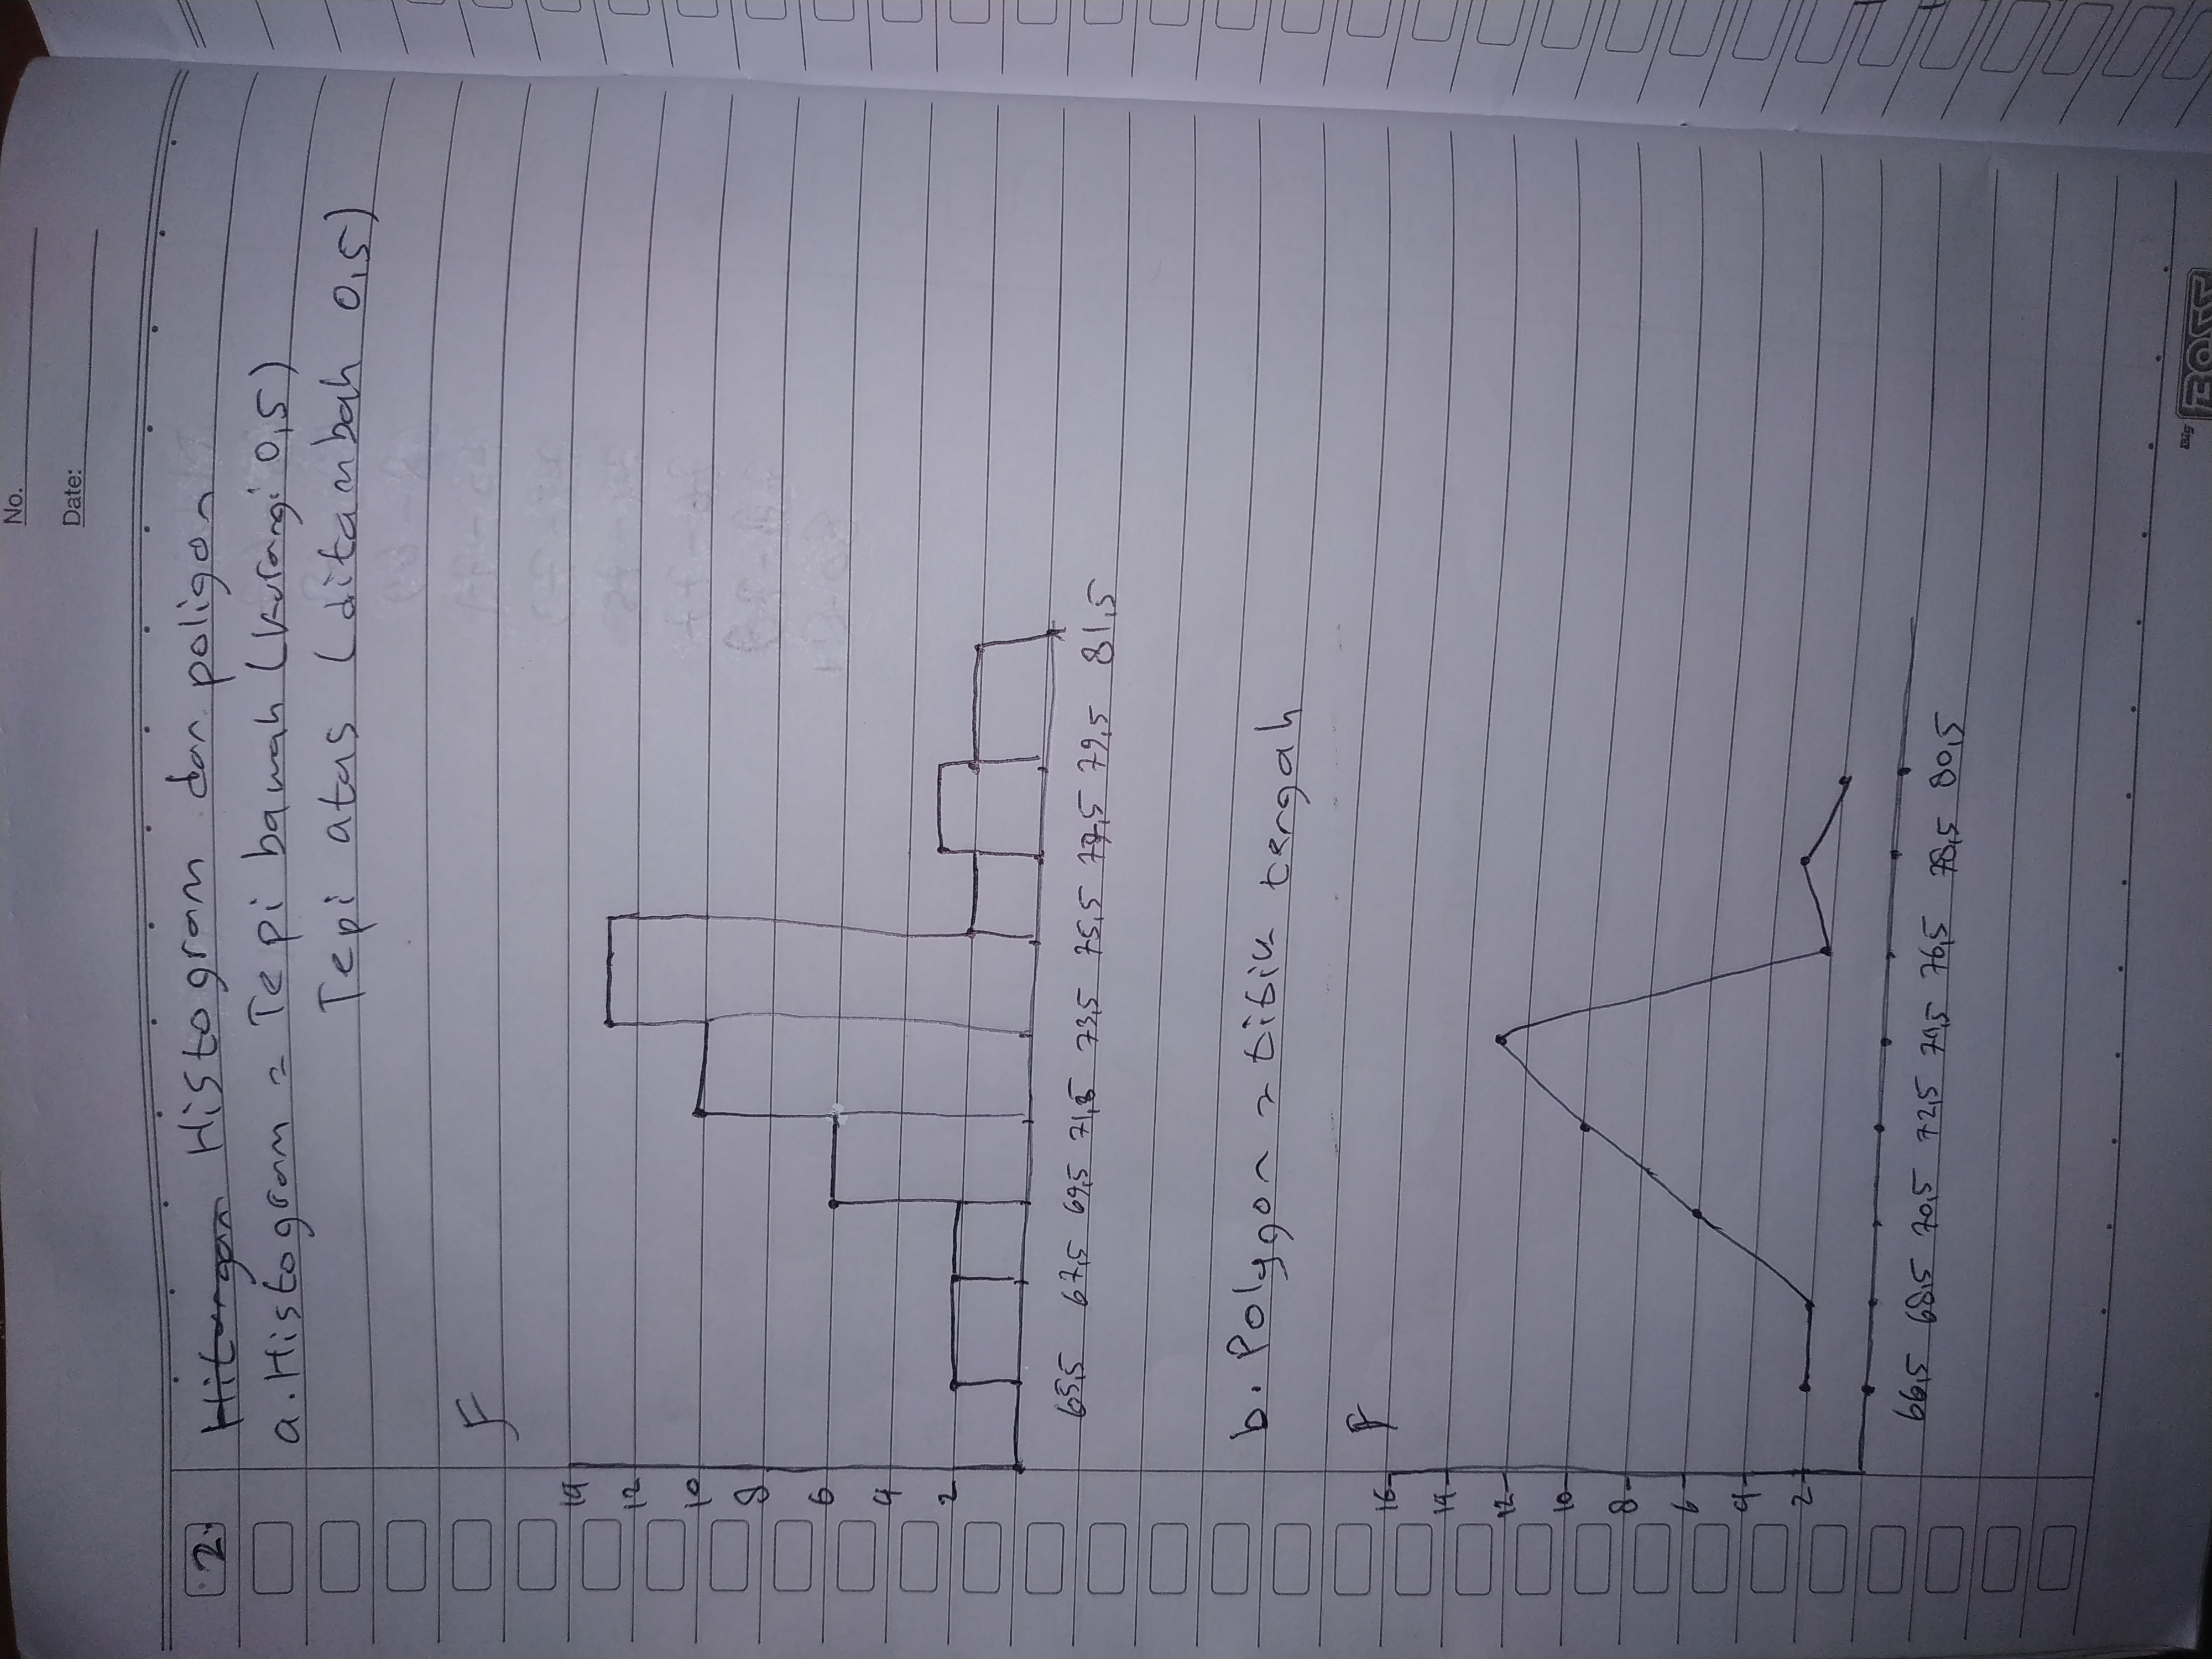 No.
Date:
2. Hitungan Histogram dan poligon
a. Histogram = Tepi bawah (Kurangi 0,5)
Tepi atas (ditambah 0,5)
F
14
12
10
8
6
4
2
65,5 67,5 69,5 71,5 73,5 75,5 77,5 79,5 81,5
b. Polygon = titik tengah
F
16
14
12
10
8
6
4
2
66,5 68,5 70,5 72,5 74,5 76,5 78,5 80,5
Big BOSS